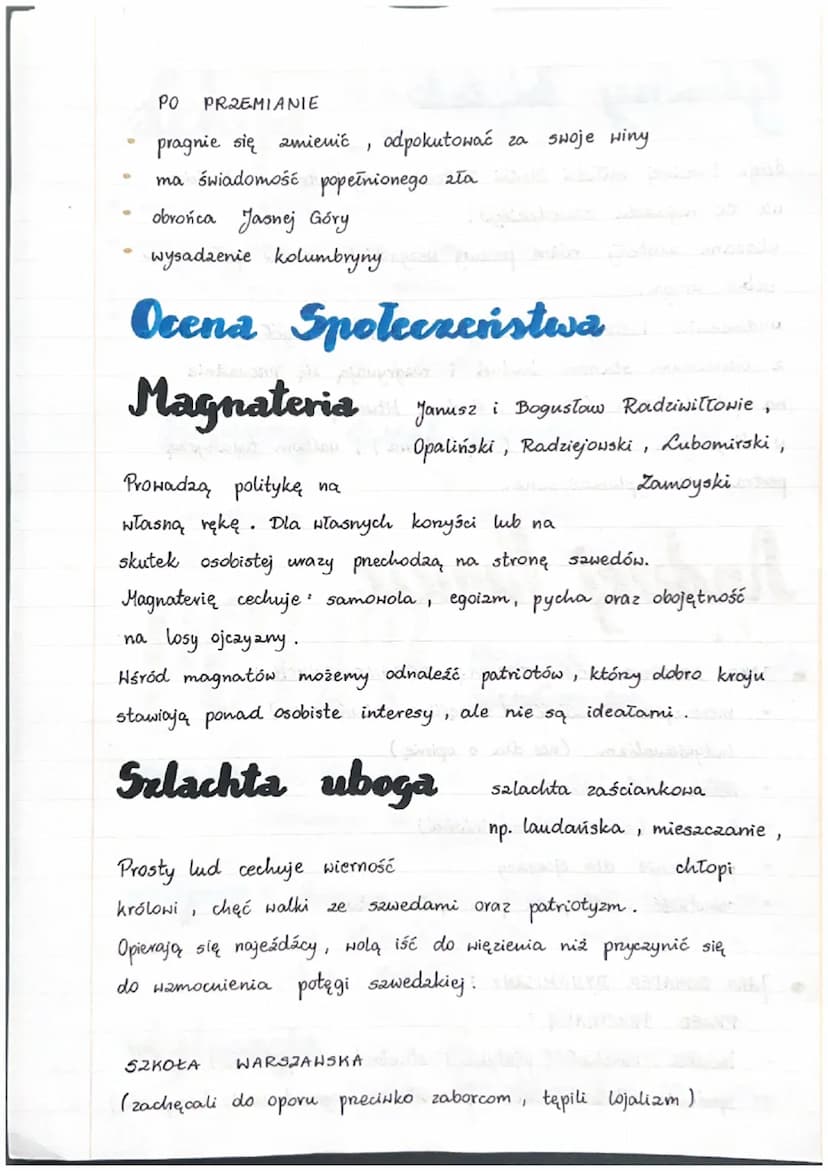 PO PRZEMIANIE
• pragnie się zmienić, odpokutować za swoje winy
• ma świadomość popełnionego zła
• obrońca Jasnej Góry
• wysadzenie kolumbryny
Ocena Społeczeństwa
Magnateria Janusz i Bogusław Radziwiłłowie,
Opaliński, Radziejowski, Lubomirski,
Prowadzą politykę na Zamoyski
własną rękę. Dla własnych korzyści lub na
skutek osobistej urazy przechodzą na stronę szwedów.
Magnaterię cechuje: samowola, egoizm, pycha oraz obojętność
na losy ojczyzny.
Wśród magnatów możemy odnaleźć patriotów, którzy dobro kraju
stawiają ponad osobiste interesy, ale nie są ideałami.
Szlachta uboga szlachta zaściankowa
np. laudańska, mieszczanie,
Prosty lud cechuje wierność chłopi
królowi, chęć walki ze szwedami oraz patriotyzm.
Opierają się najeźdźcy, wolą iść do więzienia niż przyczynić się
do wzmocnienia potęgi szwedzkiej.
SZKOŁA WARSZAWSKA
(zachęcali do oporu przeciwko zaborcom, tępili lojalizm)